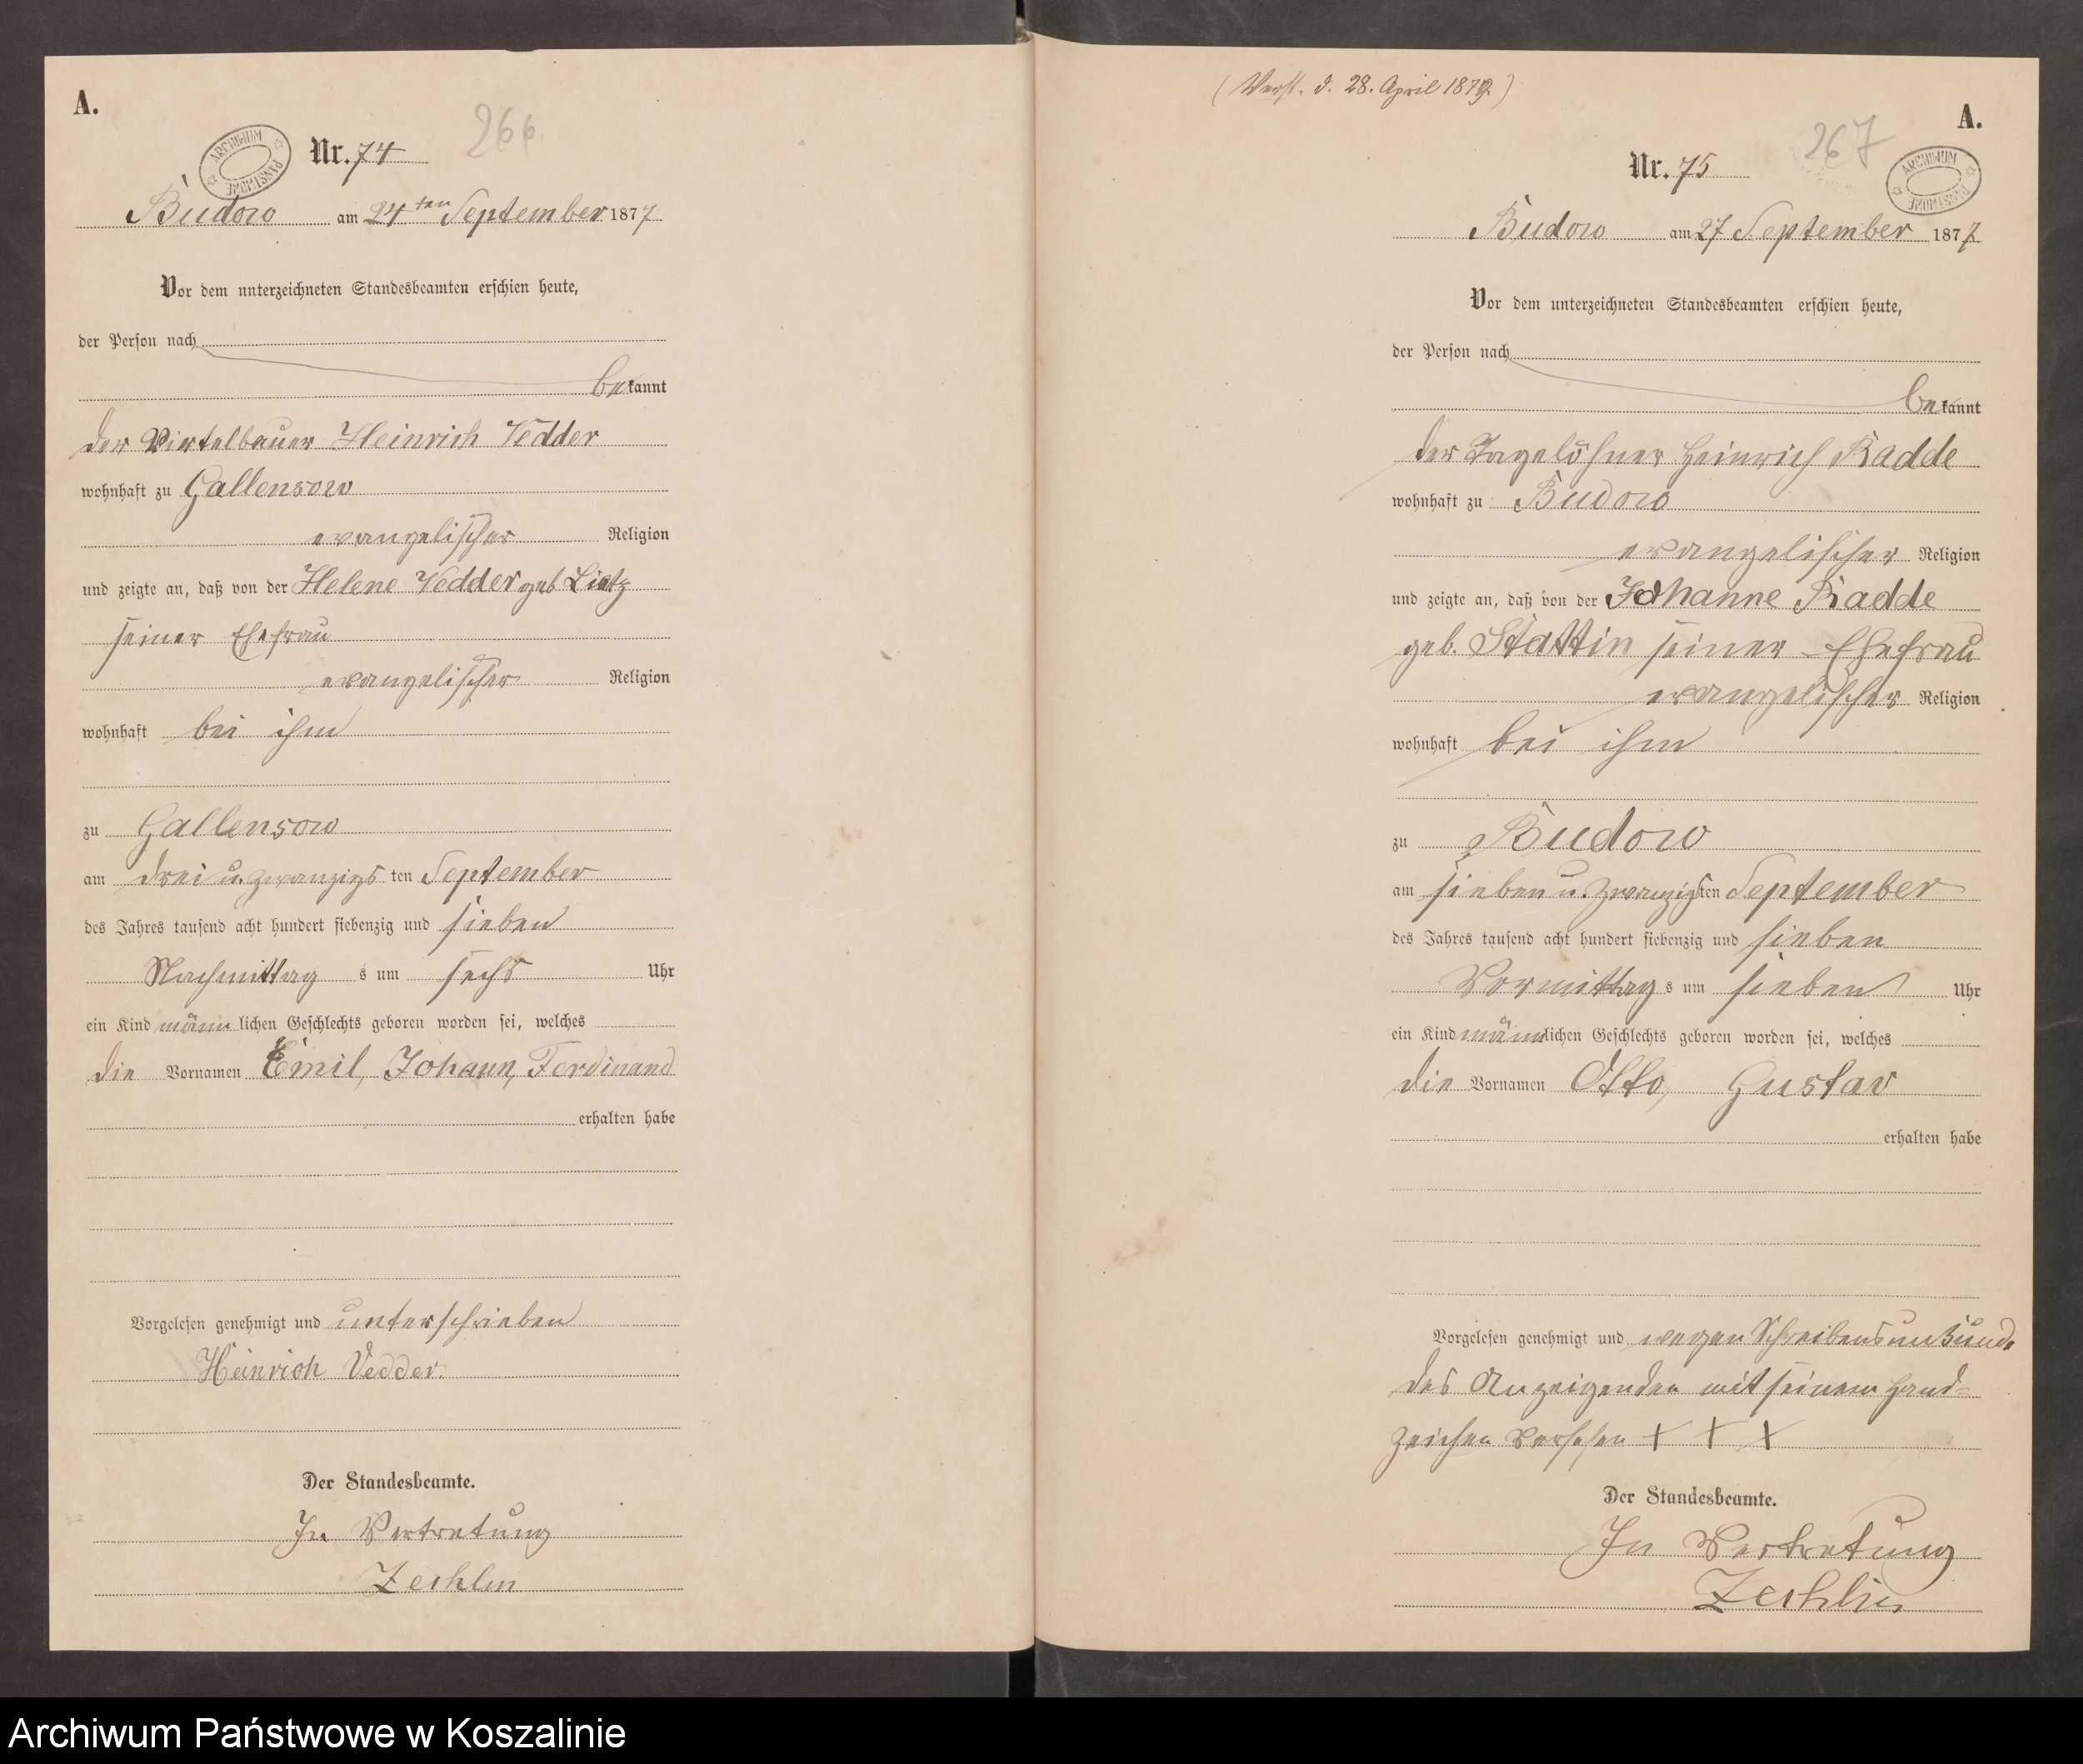 A.
266
ARCHIWUM PAŃSTWOWE
Nr. 74
Budow am 24ten September 1877
Vor dem unterzeichneten Standesbeamten erschien heute,
der Person nach
bekannt
der Viertelbauer Heinrich Vedder
wohnhaft zu Gallensow
evangelischer Religion
und zeigte an, daß von der Helene Vedder geb Lietz
seiner Ehefrau
evangelischer Religion
wohnhaft bei ihm
zu Gallensow
am drei u. zwanzigsten September
des Jahres tausend acht hundert siebenzig und sieben
Nachmittags um sechs Uhr
ein Kind männlichen Geschlechts geboren worden sei, welches
die Vornamen Emil, Johann, Ferdinand
erhalten habe
Vorgelesen genehmigt und unterschrieben
Heinrich Vedder.
Der Standesbeamte.
In Vertretung
Zechlin
d. 28. April 1879)
A.
267
ARCHIWUM PAŃSTWOWE
Nr. 75
Budow am 27 September 1877
Vor dem unterzeichneten Standesbeamten erschien heute,
der Person nach
bekannt
der Tagelöhner Heinrich Radde
wohnhaft zu Budow
evangelischer Religion
und zeigte an, daß von der Johanne Radde
geb. Stattin seiner Ehefrau
evangelischer Religion
wohnhaft bei ihm
zu Budow
am sieben u. zwanzigsten September
des Jahres tausend acht hundert siebenzig und sieben
Vormittags um sieben Uhr
ein Kind männlichen Geschlechts geboren worden sei, welches
die Vornamen Otto, Gustav
erhalten habe
Vorgelesen genehmigt und wegen Schreibensunkunde
des Anzeigenden mit seinem Hand-
zeichen versehen + + +
Der Standesbeamte.
In Vertretung
Zechlin
Archiwum Państwowe w Koszalinie